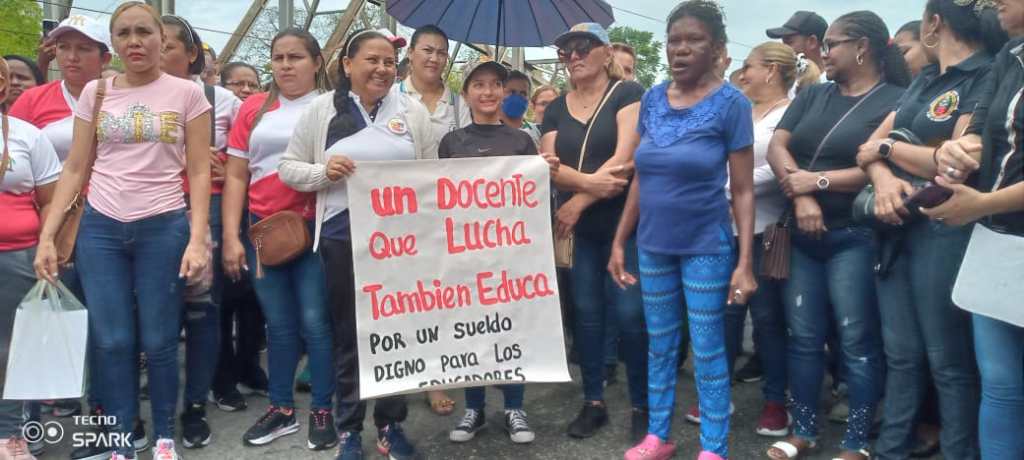 un Docente
Que Lucha
Tambien Educa
POR UN SUELDO
DIGNO PARA LOS
EDUCADORES
TECNO
SPARK